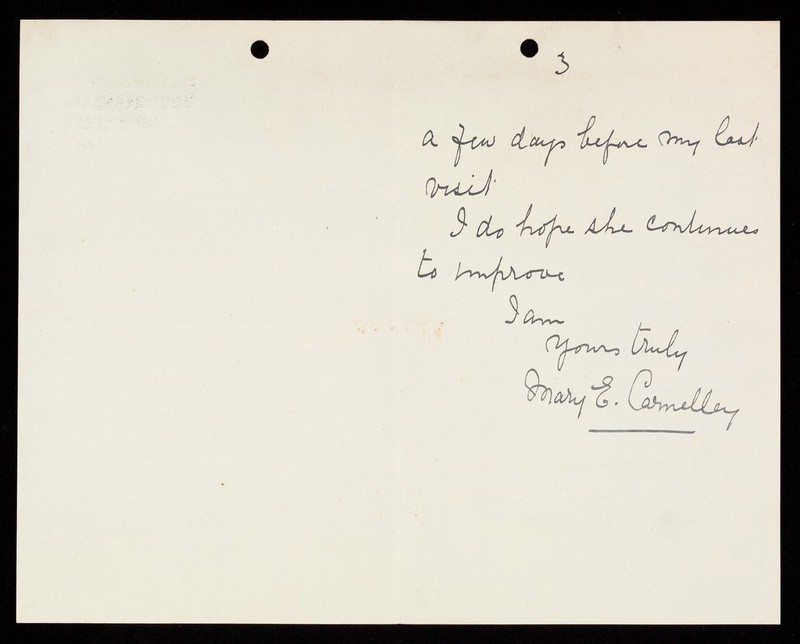 3
a few days before my last
visit
I do hope she continues
to improve
I am
Yours truly
Mary E. Carmelley